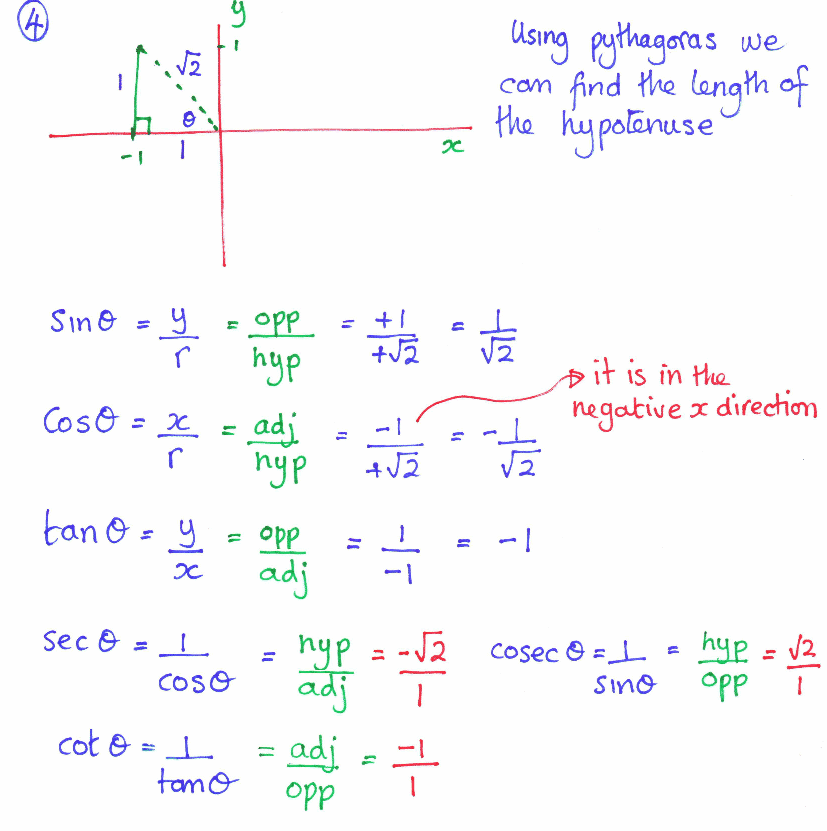 ④
y
1
√2
1
θ
-1
1
x
Using pythagoras we
can find the length of
the hypotenuse
sinθ = y/r = opp/hyp = +1/+√2 = 1/√2
it is in the
negative x direction
Cosθ = x/r = adj/hyp = -1/+√2 = -1/√2
tanθ = y/x = opp/adj = 1/-1 = -1
secθ = 1/cosθ = hyp/adj = -√2/1
cosecθ = 1/sinθ = hyp/opp = √2/1
cotθ = 1/tanθ = adj/opp = -1/1